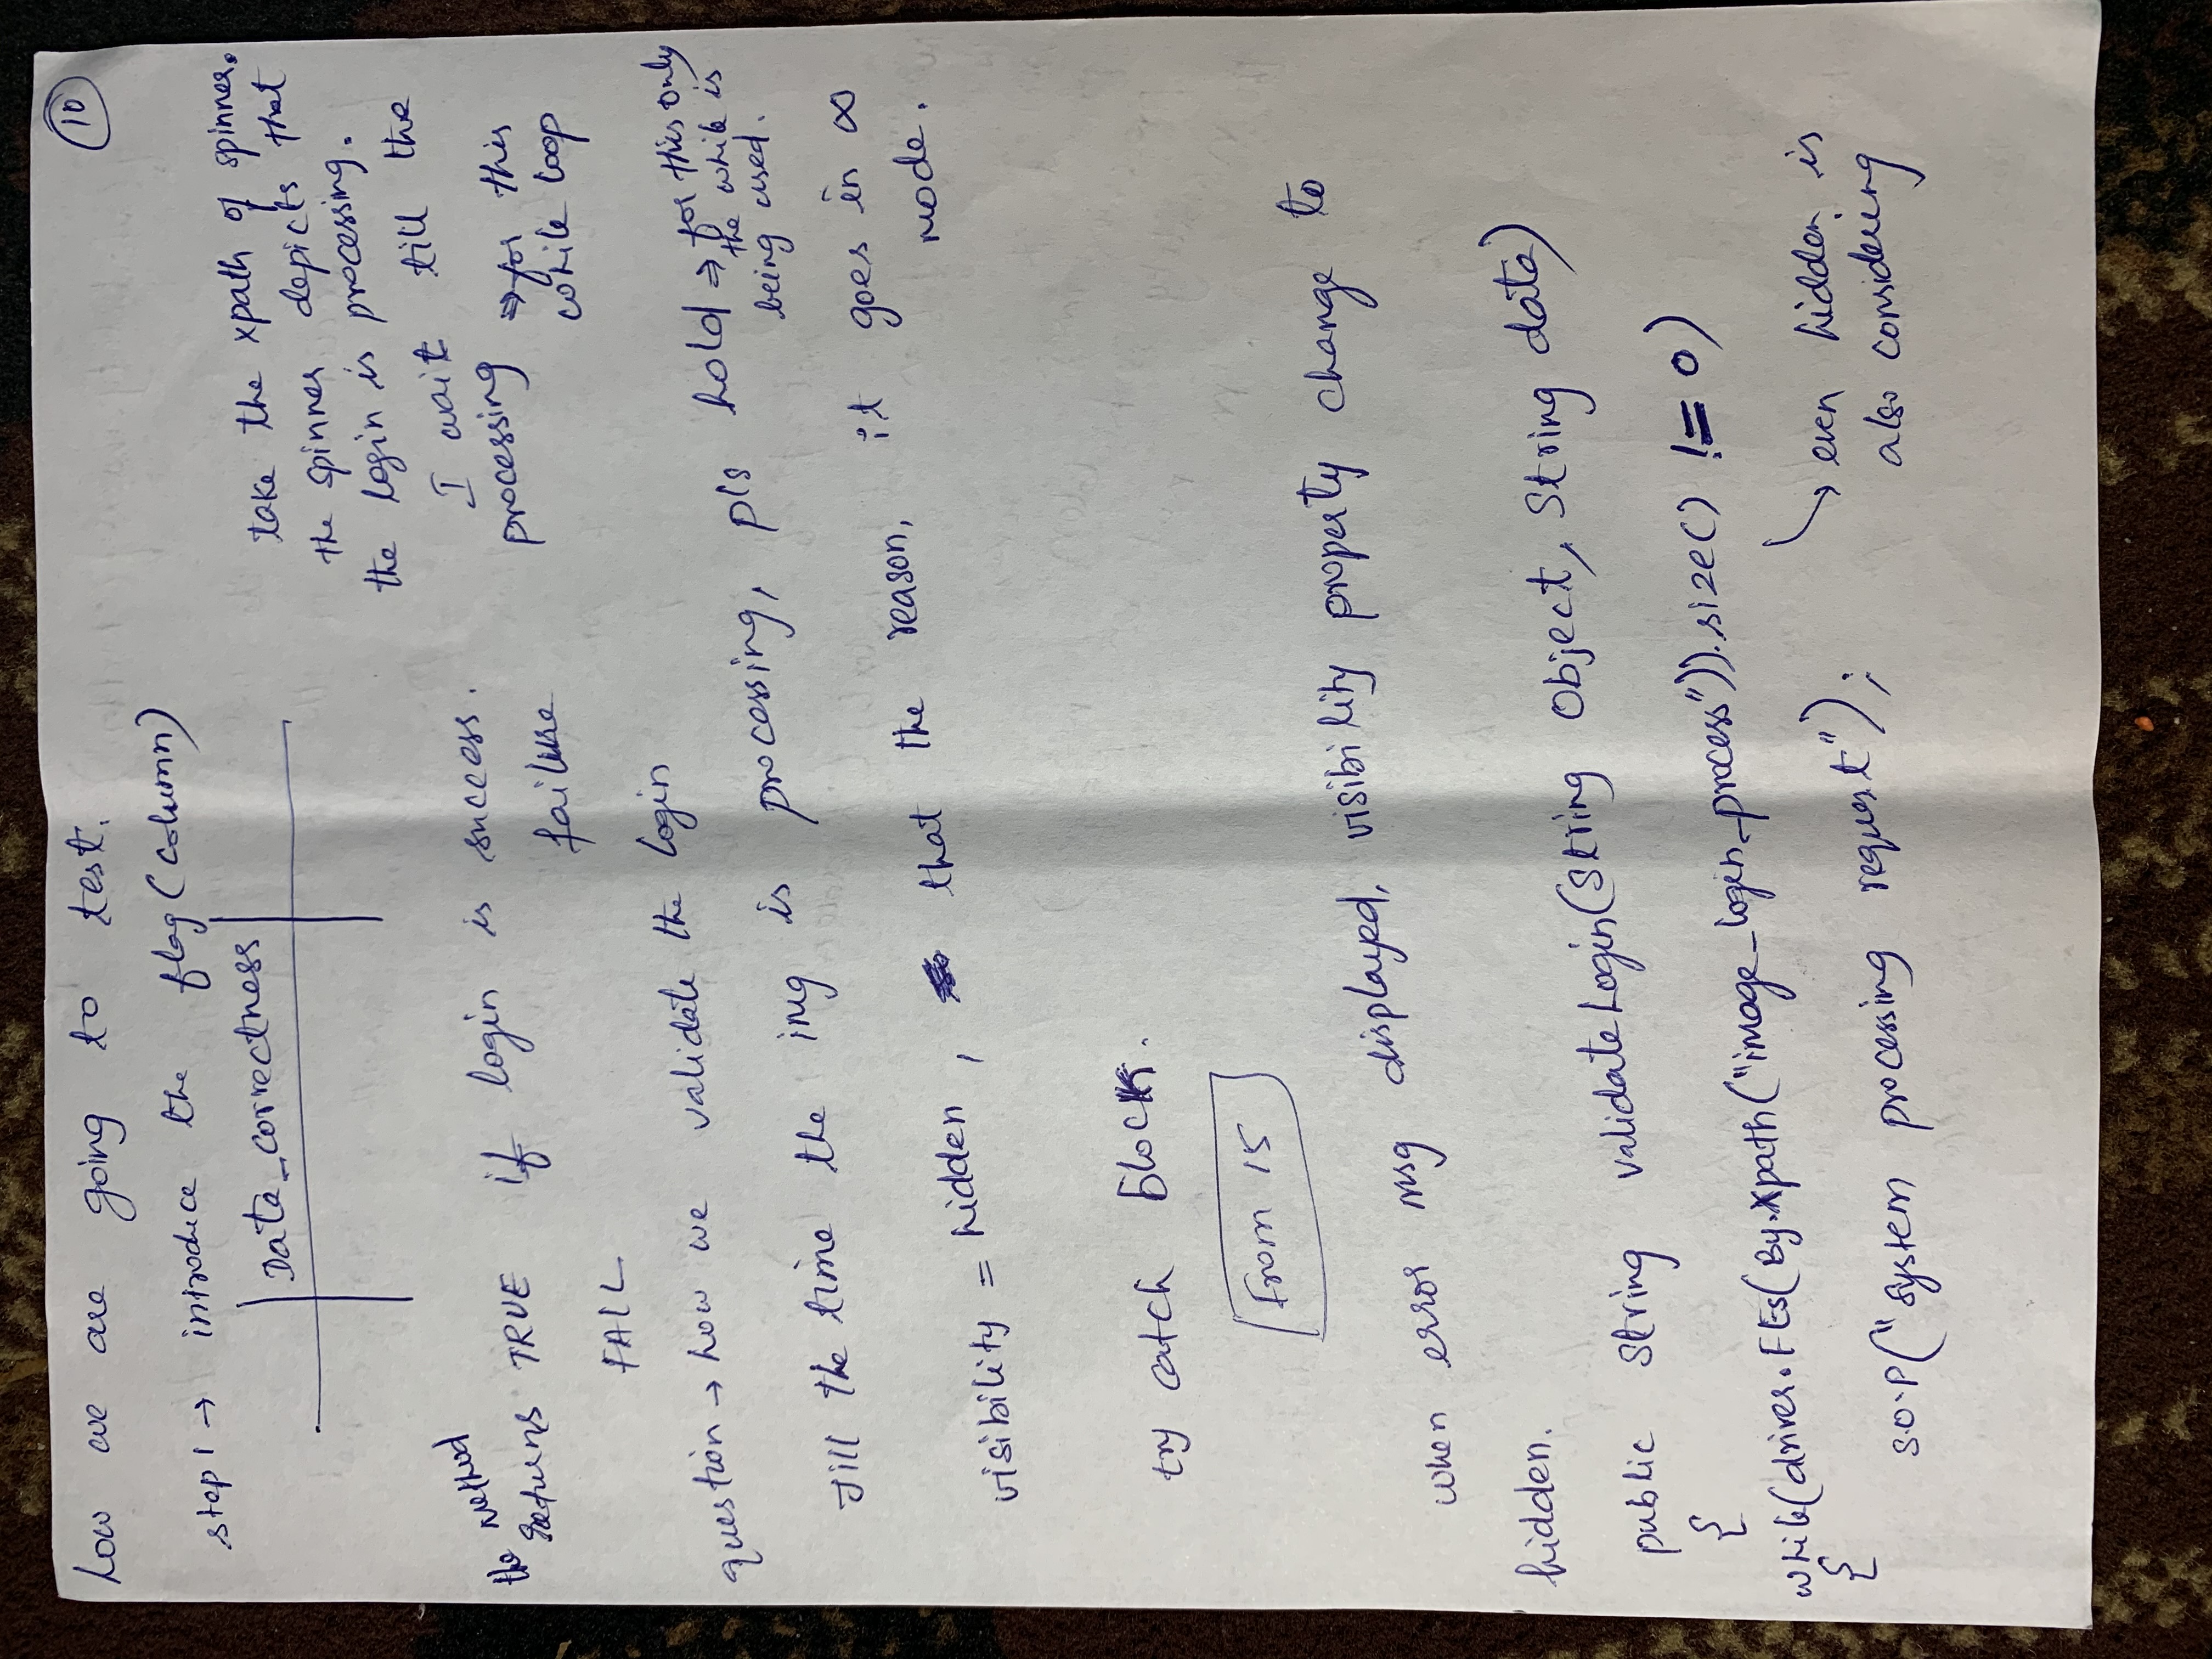 10
how we are going to test.
step 1 → introduce the flag (column)
Data_correctness
take the xpath of spinner.
the spinner depicts that
the login is processing.
I wait till the
processing ⇒ for this
while loop
the method
returns TRUE if login is success.
failure
FAIL
question → how we validate the login
Till the time the img is processing, pls hold ⇒ for this only
the while is
being used.
visibility = hidden, that the reason, it goes in ∞
mode.
try catch block.
From 15
when error msg displayed, visibility property change to
hidden.
public String validateLogin(String Object, String data)
{
while(driver.FEs(By.xpath("image_login_process")).size() != 0)
{
↘ even hidden is
also considering
S.O.P("system processing request");